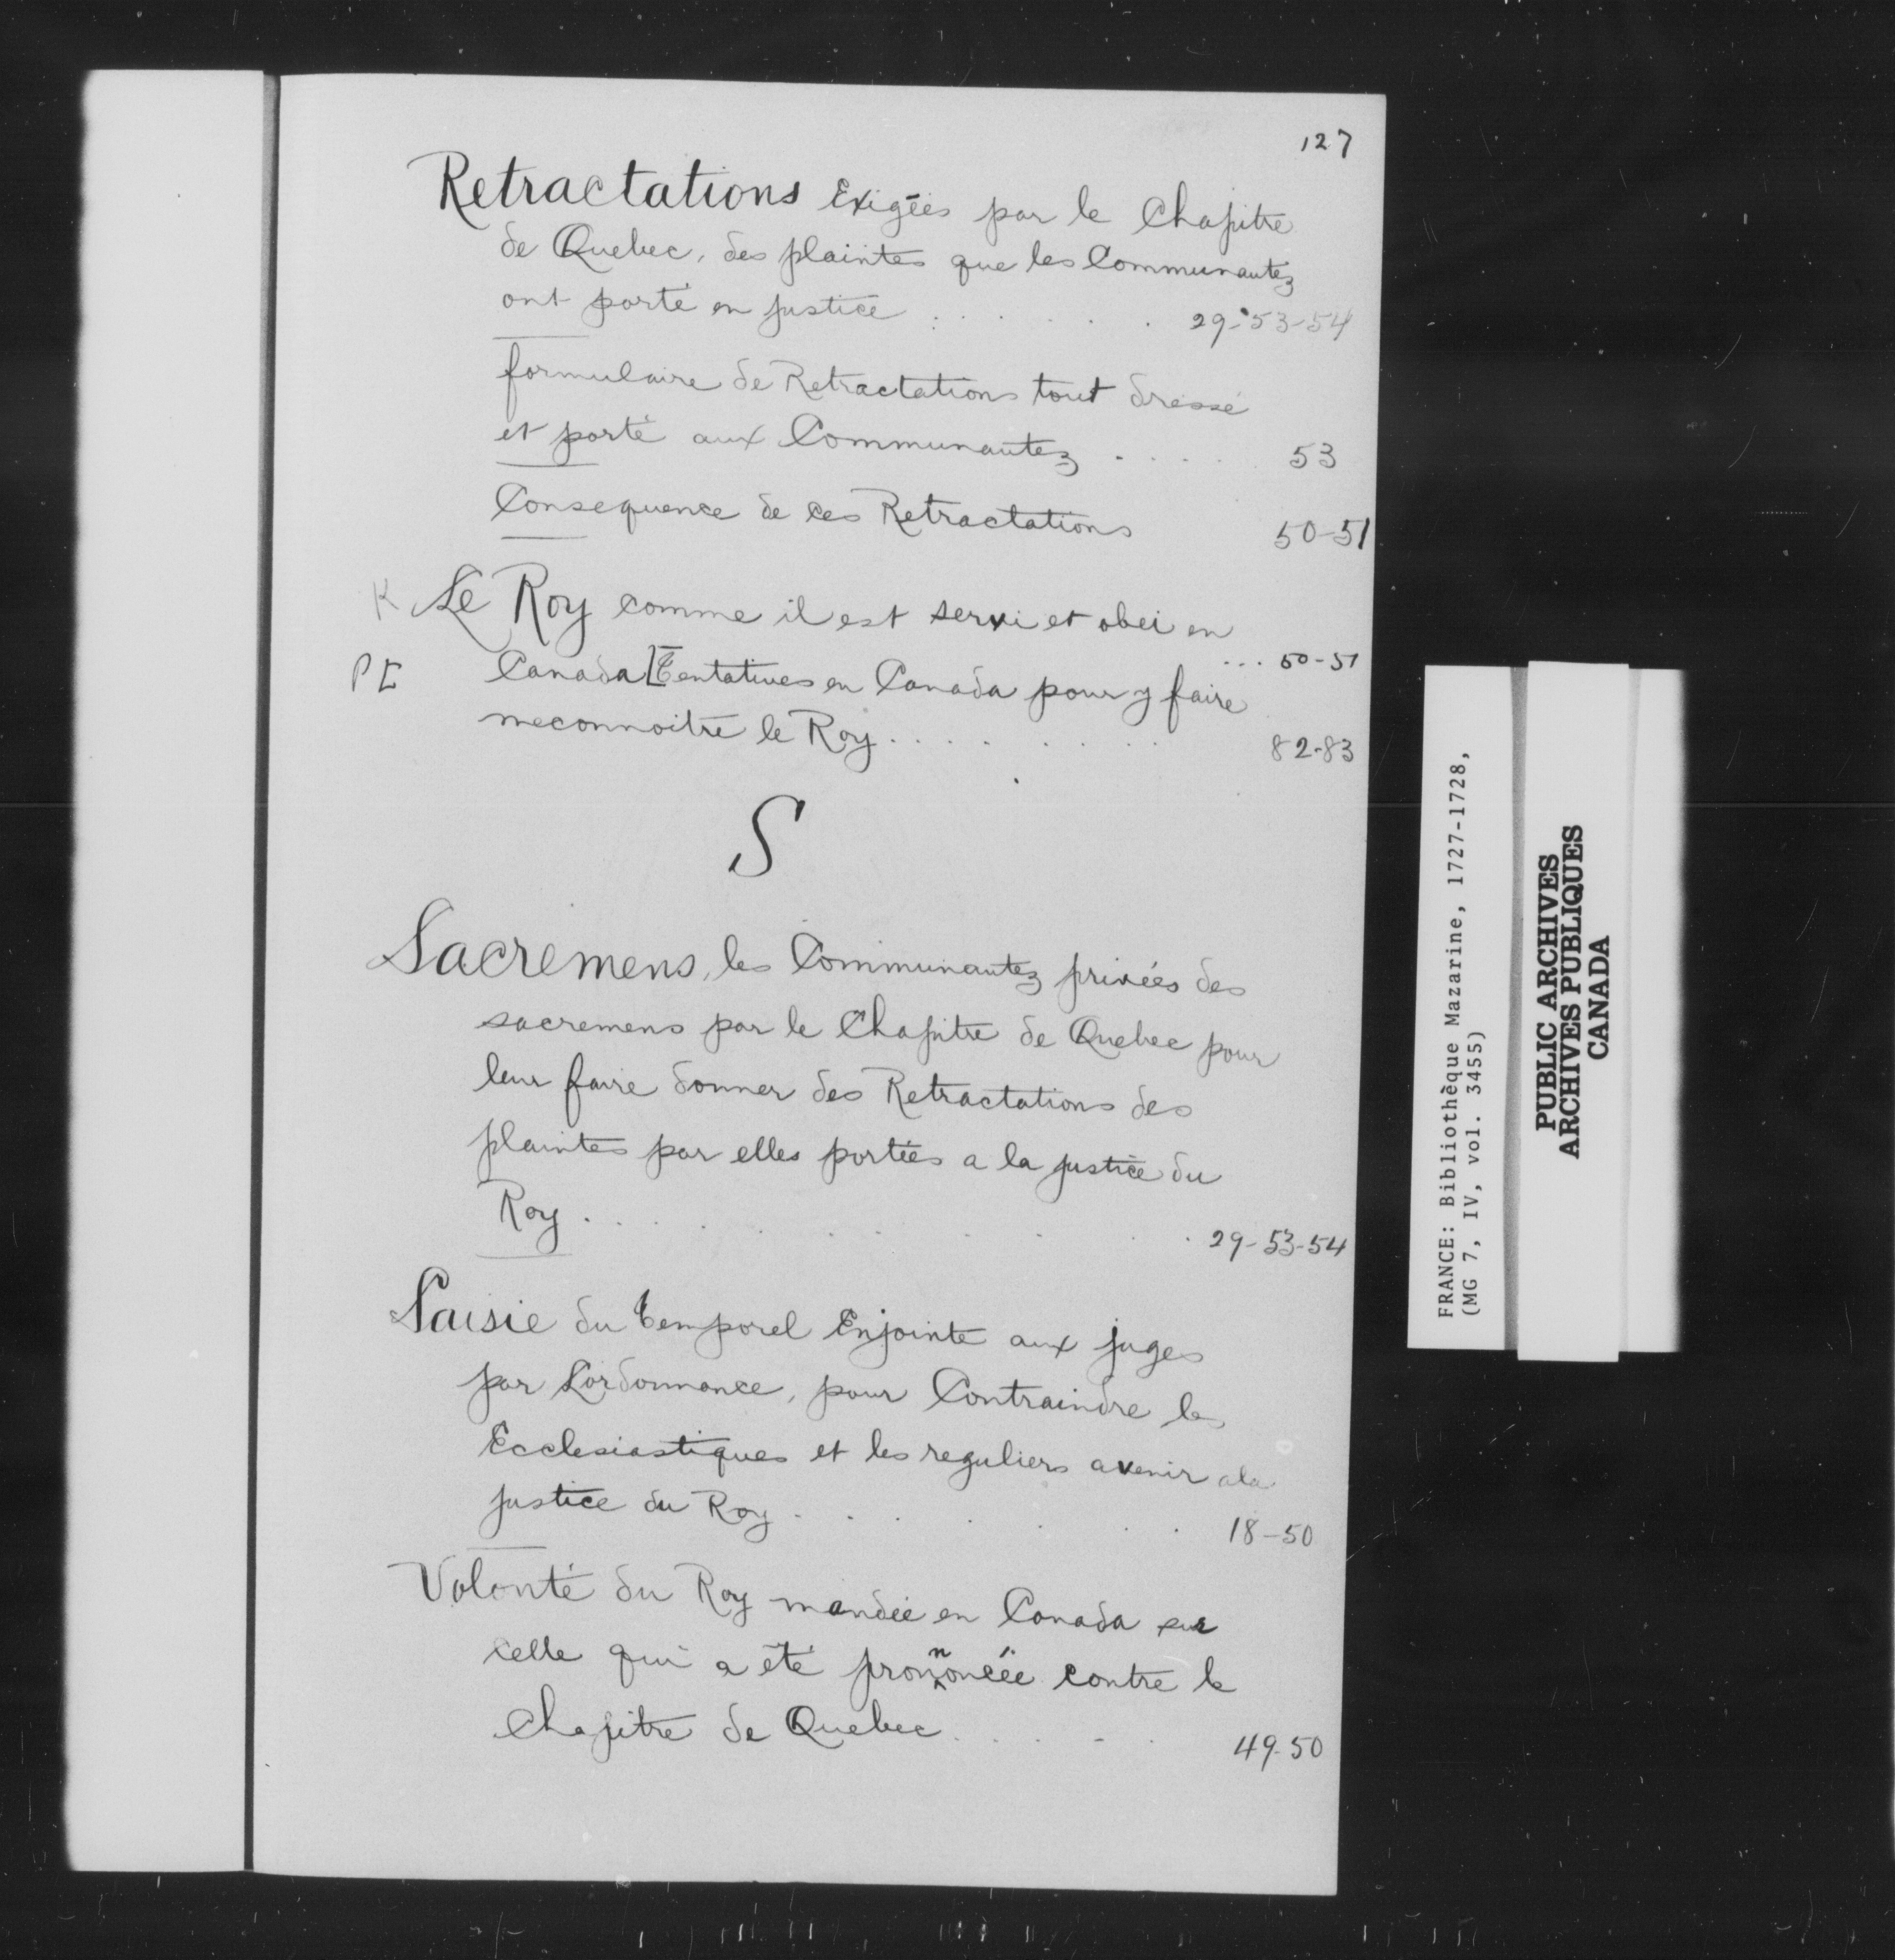 127
Retractations Exigées par le Chapitre
de Quebec, des plaintes que les Communautez
ont porté en justice . . . . . . 29-53-54
formulaire de Retractations tout dressé
et porté aux Communautez . . . . 53
Consequence de ces Retractations 50-51
K Le Roy comme il est servi et obei en
... 50-51
P[ Canada [Tentatives en Canada pour y faire
meconnoitre le Roy . . . . . . . 82-83
S
Sacremens, les Communautez privées des
sacremens par le Chapitre de Quebec pour
leur faire donner des Retractations des
plaintes par elles portées a la justice du
Roy . . . . . . . . 29-53-54
Saisie du temporel Enjointe aux juges
par Lordonnance, pour Contraindre les
Ecclesiastiques et les reguliers avenir ala
justice du Roy . . . . . . 18-50
Volonté du Roy mandée en Canada sur
celle qui a été prononcée contre le
Chapitre de Quebec . . . . 49-50
FRANCE: Bibliothèque Mazarine, 1727-1728,
(MG 7, IV, vol. 3455)
PUBLIC ARCHIVES
ARCHIVES PUBLIQUES
CANADA